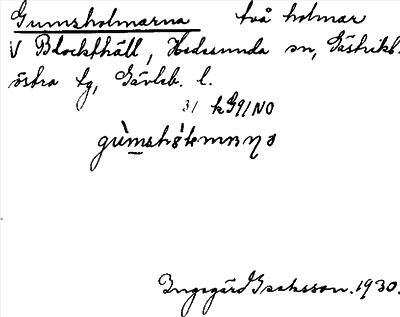 Gumsholmarna två holmar
V Blockhäll, Hedesunda sn, Gästrikl.
östra tg, Gävleb. l.
31 k G91NO
Ingegärd Isaksson. 1930.